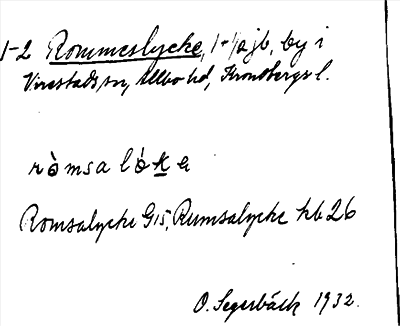 1-2 Rommeslycke, 1+1/2 jb, by i
Virestads sn, Allbo hd, Kronobergs l.
ròmsa lók e
Romsalycke G15, Rumsalycke hb 26
O. Segerbäck 1932.